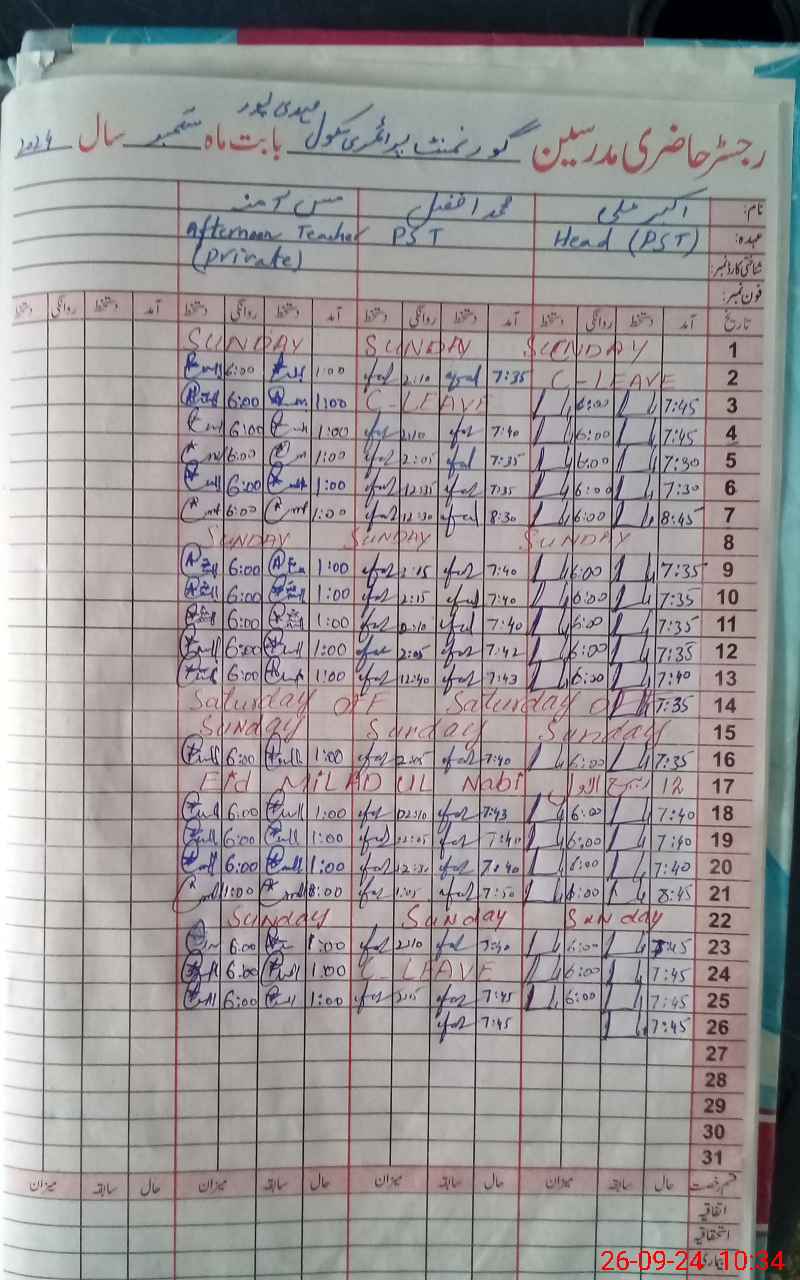 رجسٹر حاضری مدرسین گورنمنٹ پرائمری سکول مہدی پور بابت ماہ ستمبر سال 2024
نام: اکبر علی محمد افضل مس آمنہ
عہدہ: Head (PST) PST Afternoon Teacher (Private)
شناختی کارڈ نمبر:
فون نمبر:
تاریخ آمد دستخط روانگی دستخط آمد دستخط روانگی دستخط آمد دستخط روانگی دستخط آمد دستخط روانگی دستخط
1 SUNDAY SUNDAY SUNDAY
2 C-LEAVE 7:35 2:10 1:00 6:00
3 7:45 6:00 C-LEAVE 1:00 6:00
4 7:45 6:00 7:40 2:10 1:00 6:00
5 7:30 6:00 7:35 2:05 1:00 6:00
6 7:30 6:00 7:35 12:35 1:00 6:00
7 8:45 6:00 8:30 12:30 1:00 6:00
8 SUNDAY SUNDAY SUNDAY
9 7:35 6:00 7:40 2:15 1:00 6:00
10 7:35 6:00 7:40 2:15 1:00 6:00
11 7:35 6:00 7:40 2:10 1:00 6:00
12 7:35 6:00 7:42 2:05 1:00 6:00
13 7:40 6:00 7:43 12:40 1:00 6:00
14 7:35 Saturday OFF Saturday OFF
15 Sunday Sunday Sunday
16 7:35 6:00 7:40 2:05 1:00 6:00
17 12 ربیع الاول Eid MiLAD UL Nabi
18 7:40 6:00 7:43 02:10 1:00 6:00
19 7:40 6:00 7:40 1:00 6:00
20 7:40 6:00 7:40 12:30 1:00 6:00
21 8:45 6:00 7:50 1:05 8:00 1:00
22 Sunday Sunday Sunday
23 7:45 6:00 7:40 2:10 1:00 6:00
24 7:45 6:00 C-LEAVE 1:00 6:00
25 7:45 6:00 7:45 2:15 1:00 6:00
26 7:45 7:45
27
28
29
30
31
قسم رخصت حال سابقہ میزان حال سابقہ میزان حال سابقہ میزان حال سابقہ میزان
اتفاقیہ
استحقاقیہ
بیماری
26-09-24 10:34